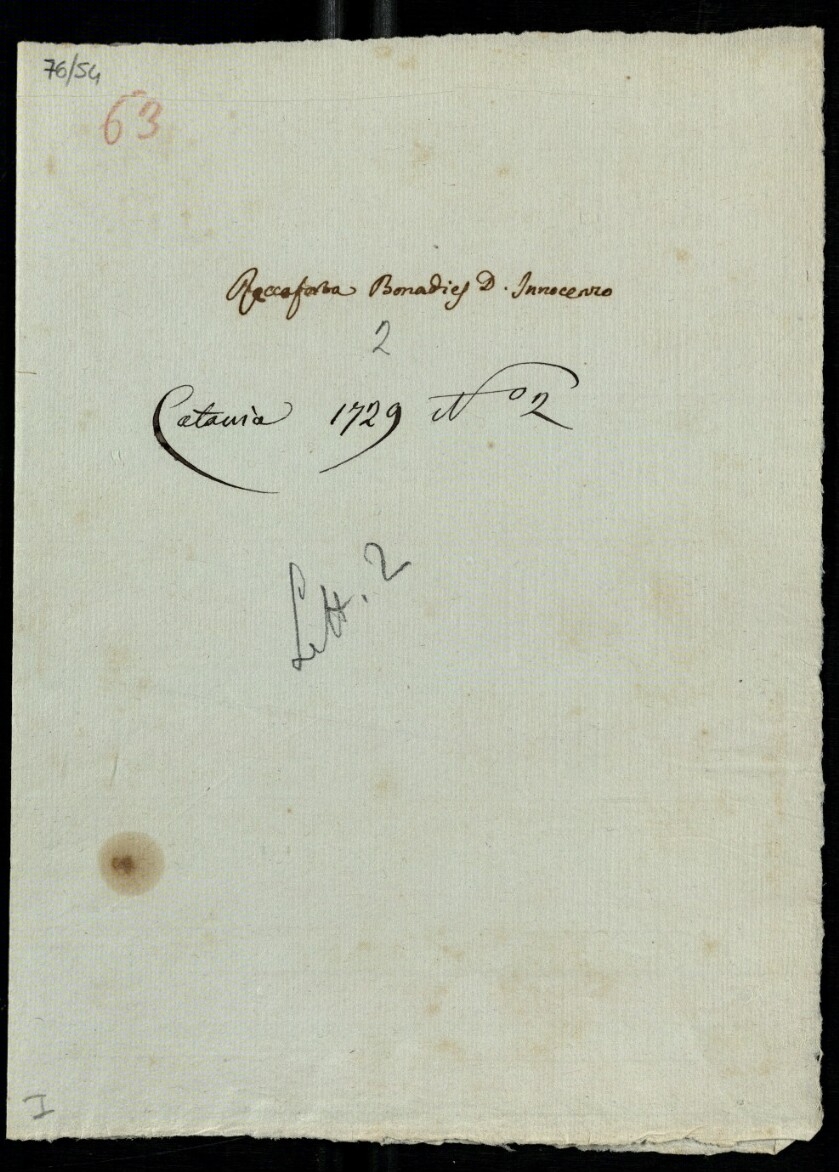 76/54
63
Roccaforte Bonadies D. Innocenzo
2
Catania 1729 No 2
Lett. 2
I